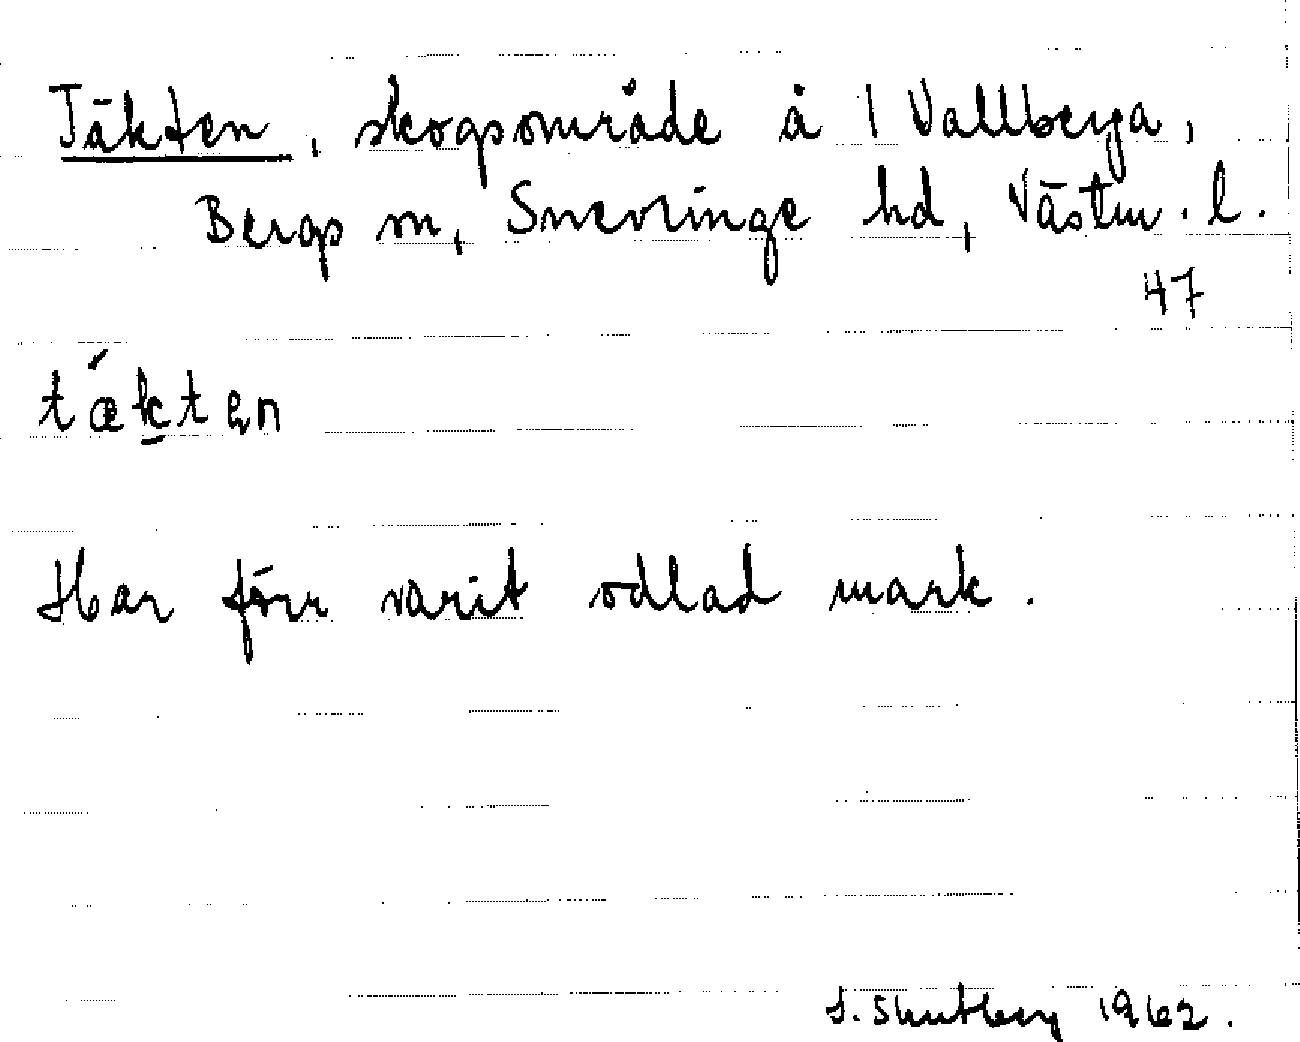 Täkten, skogsområde å 1 Vallberga,
Bergs sn, Snevringe hd, Västm. l.
47
tǽk̲tən
Har förr varit odlad mark.
S. Skutberg 1962.